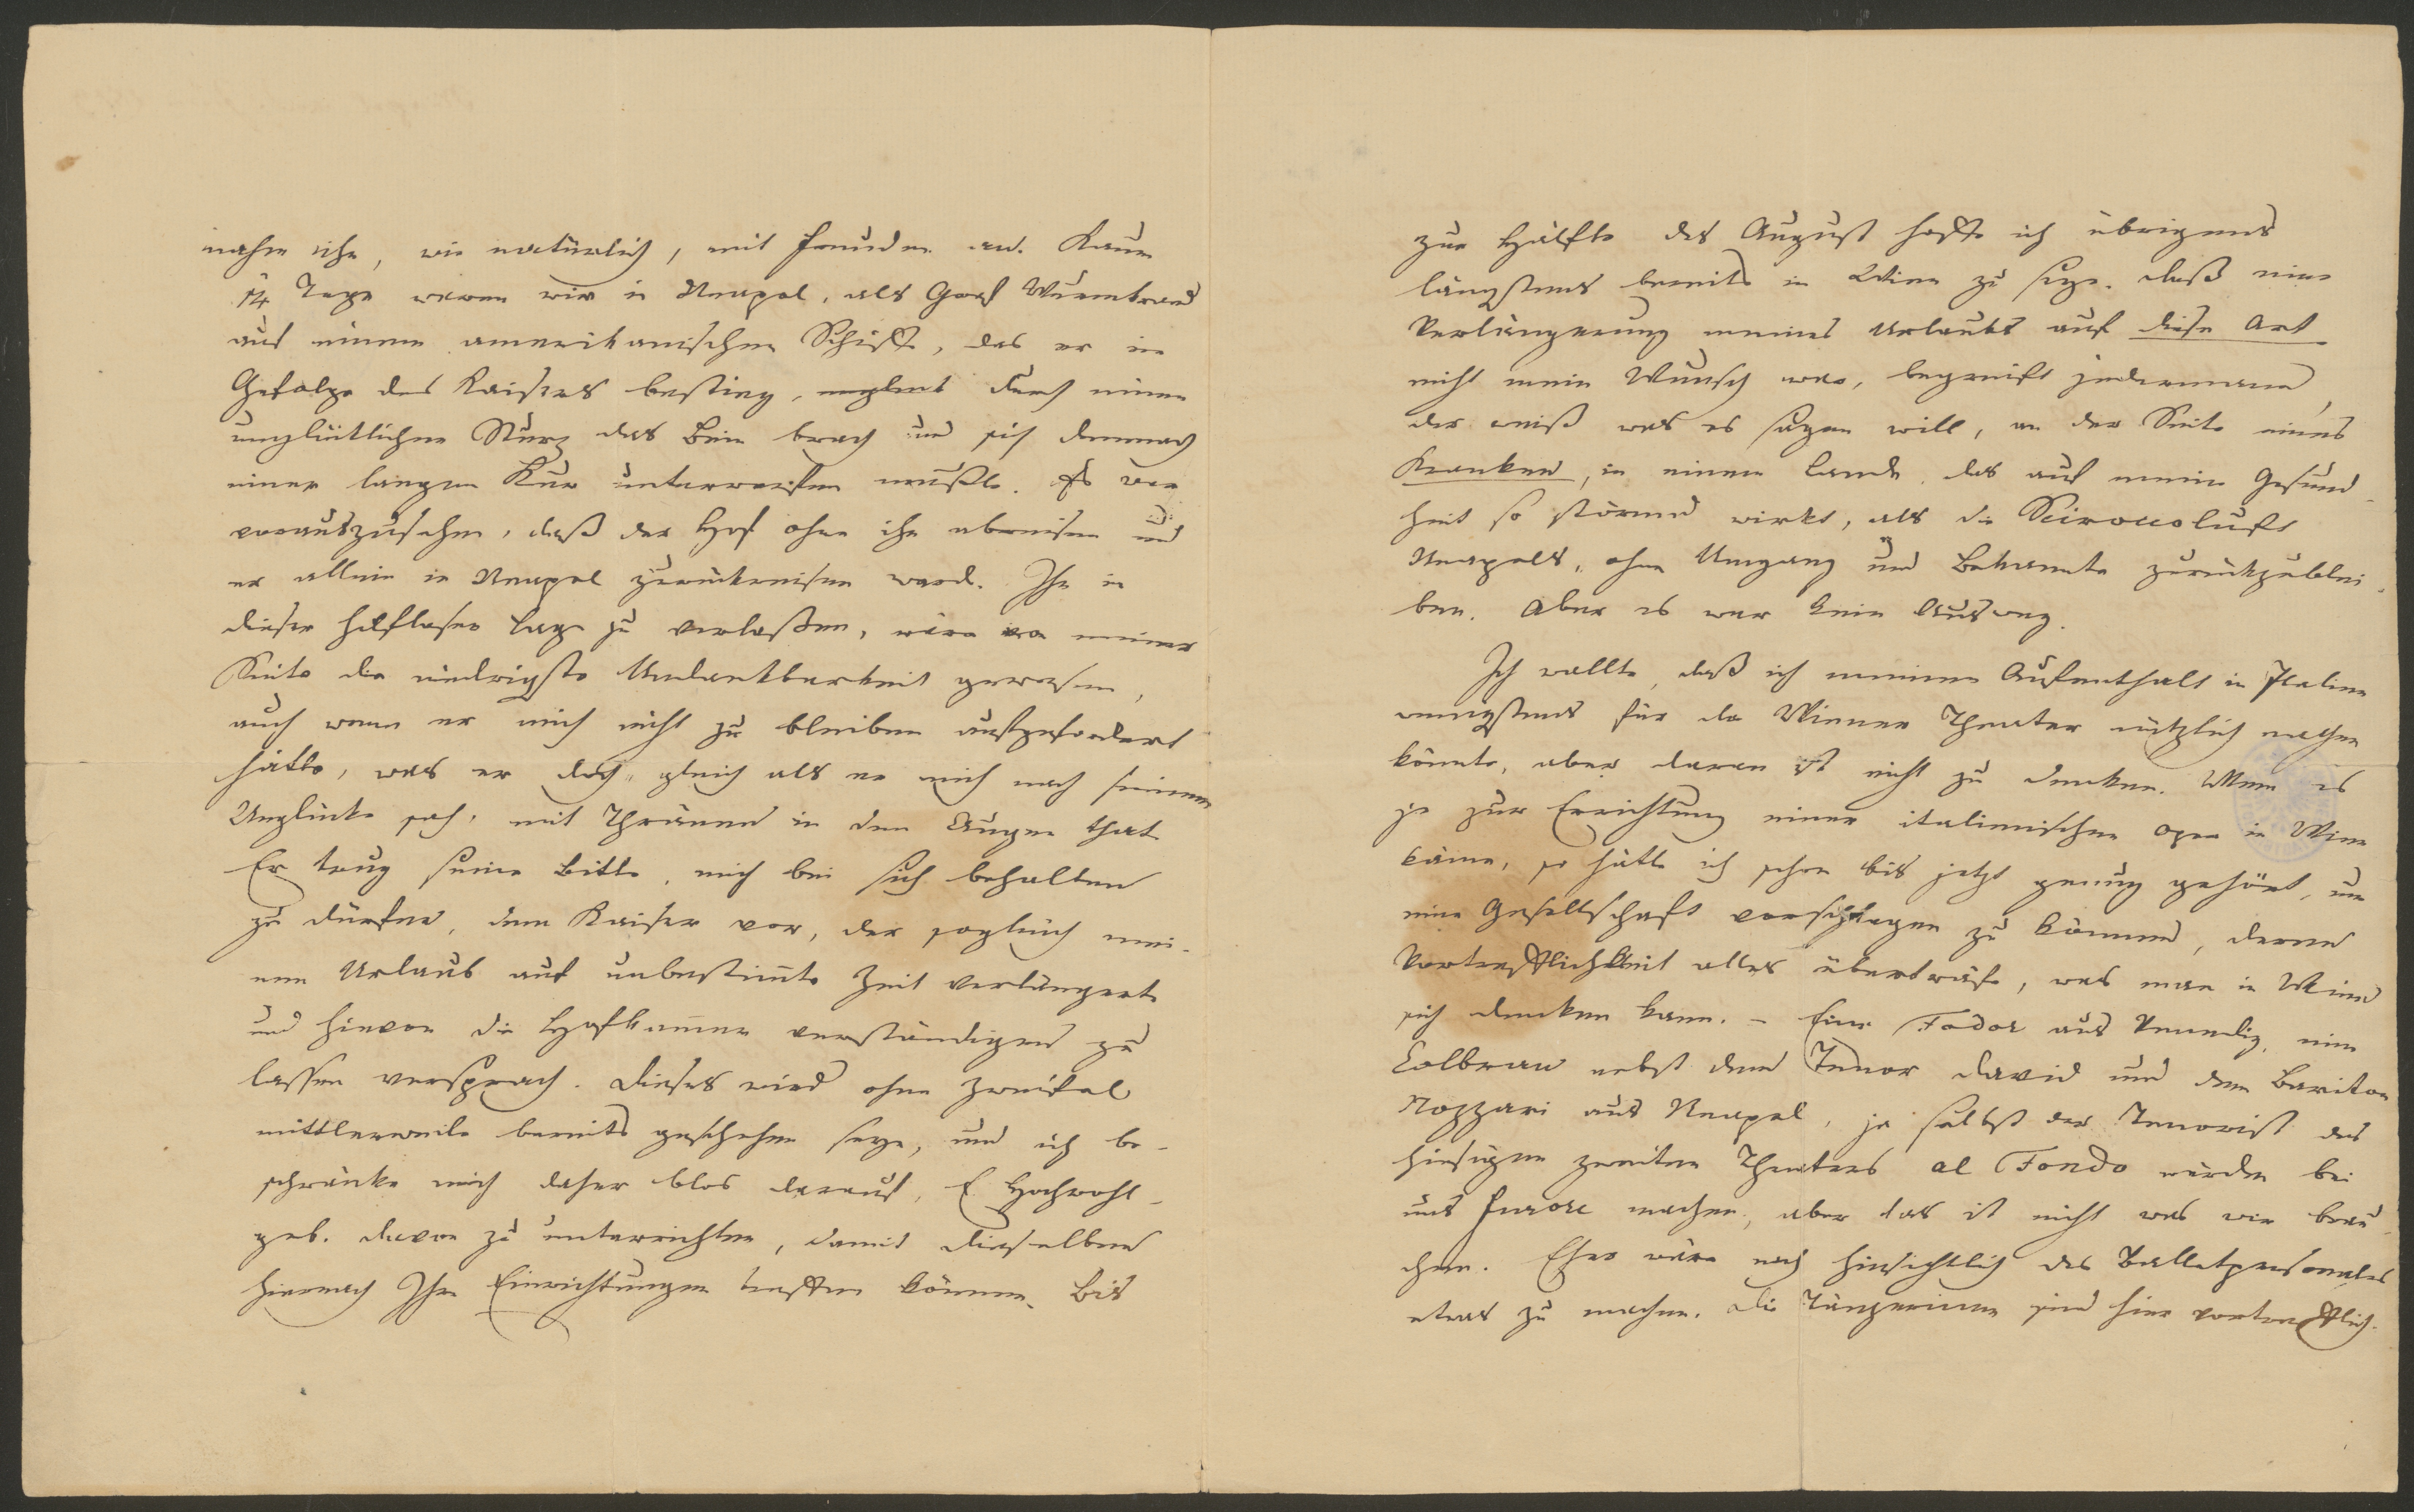 nahm ihn, wie natürlich, mit Freuden an. Kaum
14 Tage waren wir in Neapel, als Graf Wurmbrand
auf einem amerikanischen Schiffe, das er im
Gefolge des Kaisers bestieg, durch einen
unglücklichen Sturz das Bein brach und sich demnach
einer langen Kur unterwerfen mußte. Es war
vorauszusehen, daß der Hof ohne ihn abreisen und
er allein in Neapel zurückreisen ward. Ihn in
dieser hilflosen Lage zu verlaßen, wäre von meiner
Seite die niedrigste Undankbarkeit gewesen,
auch wenn er mich nicht zu bleiben aufgefordert
hätte, was er doch, gleich als er mich nach seinem
Unglücke sah, mit Thränen in den Augen that.
Er trug seine Bitte, mich bei sich behalten
zu dürfen, dem Kaiser vor, der sogleich mei-
nen Urlaub auf unbestimte Zeit verlängert
und hievon die Hofkammer verständigen zu
lassen versprach. Dieses wird ohne Zweifel
mittlerweile bereits geschehen seyn, und ich be-
schränke mich daher blos darauf, E. Hochwohl-
geb. davon zu unterrichten, damit dieselben
hiernach Ihre Einrichtungen treffen können. Bis
zur Hälfte des August hoffe ich übrigens
längstens bereits in Wien zu seyn. Daß eine
Verlängerung meines Urlaubs auf diese Art
nicht mein Wunsch war, begreift jedermann,
der weiß was es sagen will, an der Seite eines
Kranken, in einem Lande, das auf meine Gesund-
heit so störend wirkt, als die Sciroccoluft
Neapels, ohne Umgang und Bekannte zurückzublei-
ben. Aber es war kein Ausweg.
Ich wollte, daß ich meinen Aufenthalt in Italien
wenigstens für das Wiener Theater nützlich machen
könnte, aber daran ist nicht zu denken. Wenn es
je zur Errichtung einer italienischen Oper in Wien
käme, so hätte ich schon bis jetzt genug gehört, um
eine Gesellschaft vorschlagen zu können, deren
Vortrefflichkeit alles überträfe, was man in Wien
sich denken kann. – Eine Fodor aus Venedig, eine
Colbran nebst dem Tenor David und dem Bariton
Nozzari aus Neapel, ja selbst der Tenorist des
hiesigen zweiten Theaters al Fondo würden bei
uns Furore machen, aber das ist nicht was wir brau-
chen. Eher wäre noch hinsichtlich des Balletpersonales
etwas zu machen. Die Tänzerinnen sind hier vortrefflich.